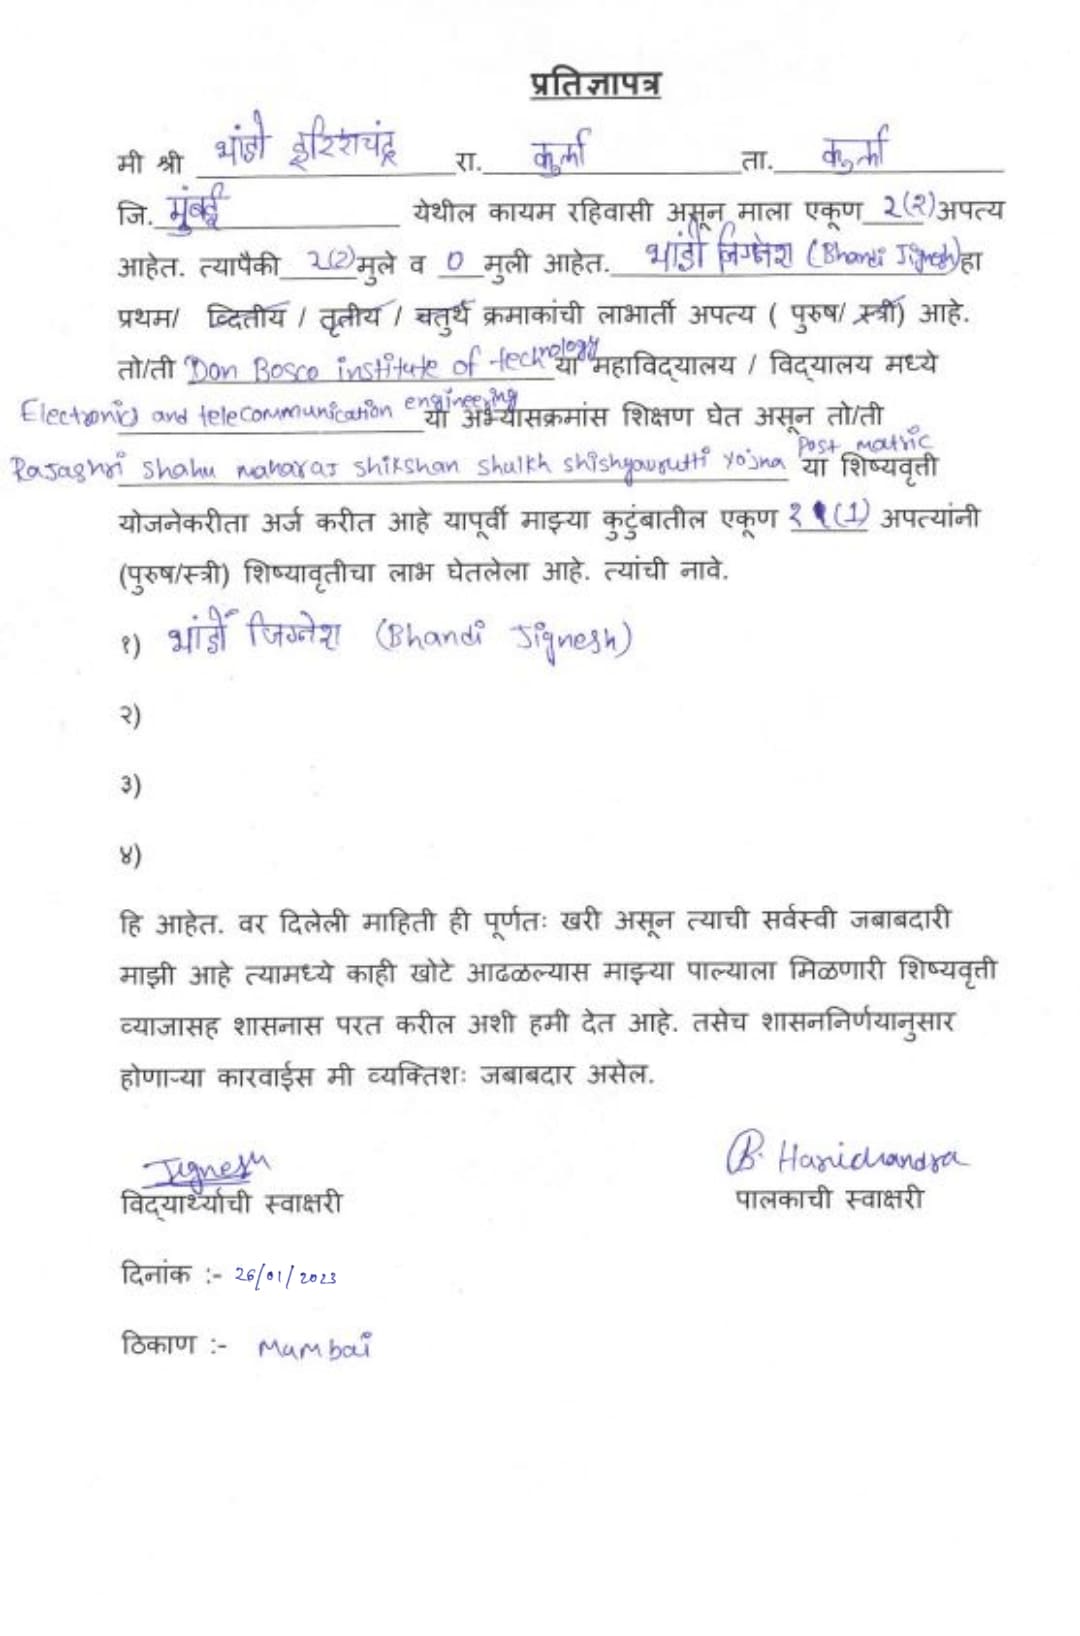 प्रतिज्ञापत्र
मी श्री भांडी हरिशचंद्र रा. कुर्ला ता. कुर्ला
जि. मुंबई येथील कायम रहिवासी असून माला एकूण २(2) अपत्य
आहेत. त्यापैकी २(2) मुले व 0 मुली आहेत. भांडी जिग्नेश (Bhandi Jignesh) हा
प्रथम/ व्दितीय / तृतीय / चतुर्थ क्रमाकांची लाभार्ती अपत्य ( पुरुष/ स्त्री) आहे.
तो/ती Don Bosco institute of technology या महाविद्यालय / विद्यालय मध्ये
Electronics and telecommunication engineering या अभ्यासक्रमांस शिक्षण घेत असून तो/ती
Rajashri shahu maharaj shikshan shulkh shishyavrutti yojna Post matric या शिष्यवृत्ती
योजनेकरीता अर्ज करीत आहे यापूर्वी माझ्या कुटुंबातील एकूण १ (1) अपत्यांनी
(पुरुष/स्त्री) शिष्यावृतीचा लाभ घेतलेला आहे. त्यांची नावे.
१) भांडी जिग्नेश (Bhandi Jignesh)
२)
३)
४)
हि आहेत. वर दिलेली माहिती ही पूर्णतः खरी असून त्याची सर्वस्वी जबाबदारी
माझी आहे त्यामध्ये काही खोटे आढळल्यास माझ्या पाल्याला मिळणारी शिष्यवृत्ती
व्याजासह शासनास परत करील अशी हमी देत आहे. तसेच शासननिर्णयानुसार
होणाऱ्या कारवाईस मी व्यक्तिशः जबाबदार असेल.
Jignesh B. Harichandra
विद्यार्थ्याची स्वाक्षरी पालकाची स्वाक्षरी
दिनांक :- 26/01/2023
ठिकाण :- Mumbai